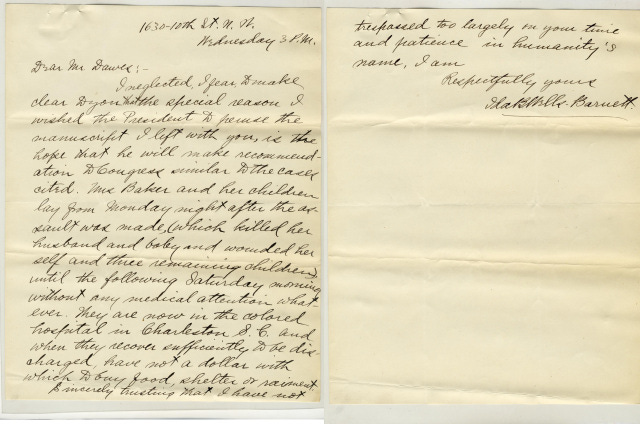 1630-10th St. N. W.
Wednesday 3 P.M.
Dear Mr Dawes:-
I neglected, I fear to make
clear to you that the special reason I
wished the President to peruse the
manuscript I left with you, is the
hope that he will make recommend-
ation to Congress similar to the cases
cited. Mrs Baker and her children
lay from Monday night after the as-
sault was made, (which killed her
husband and baby and wounded her
self and three remaining children)
until the following Saturday morning
without any medical attention what
ever. They are now in the colored
hospital in Charleston S.C. and
when they recover sufficiently to be dis-
charged, have not a dollar with
which to buy food, shelter or raiment
Sincerely trusting that I have not
trespassed too largely on your time
and patience in humanity's
name, I am
Respectfully yours
Ida B Wells-Barnett.